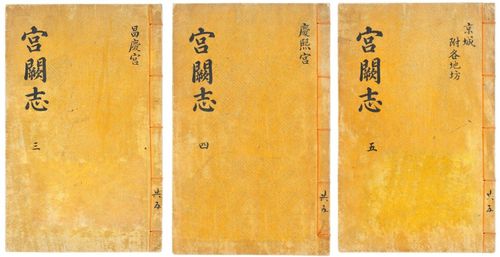 宮闕志
三
昌慶宮
共五
宮闕志
四
慶熙宮
共五
宮闕志
五
京城
附各地坊
共五